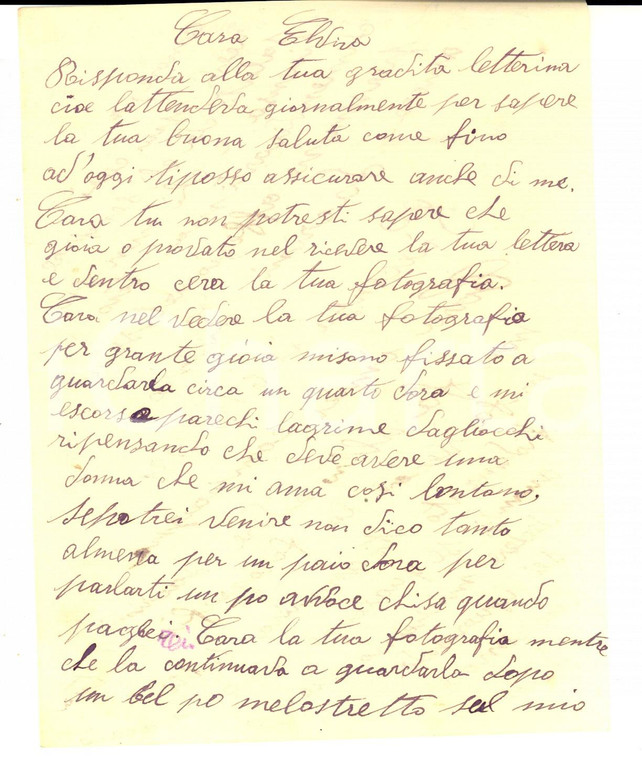 Cara Elvira
Risponda alla tua gradita letterina
cioe lattenderva giornalmente per sapere
la tua buona saluta come fino
ad'oggi tiposso assicurare anche di me.
Cara tu non potresti sapere che
gioia o provato nel ricevere la tua lettera
e dentro cera la tua fotografia.
Cara nel vedere la tua fotografia
per grante gioia misono fissato a
guardarla circa un quarto dora e mi
escorso parechi lagrime dagliocchi
ripensando che deve avere una
donna che mi ama cosi lontano,
sepotrei venire non dico tanto
almeno per un paio dora per
parlarti un po avvoce chisa quando
pagherei. Cara la tua fotografia mentre
che la continuava a guardarla dopo
un bel po melostretto sul mio